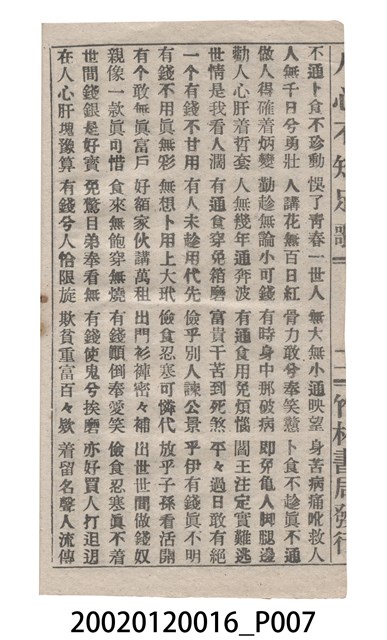 人心不知足歌　二　竹林書局發行
不通卜食不珍動　悞了青春一世人　無大無小通映望　身苦病痛叱救人
人無千日兮勇壯　人講花無百日紅　骨力敢兮奉笑憨　卜食不趁眞不通
做人得確着炳變　勤趁無論小可錢　有時身中那破病　即免龜人脚腿邊
勸人心肝着哲套　人無幾年通奔波　有通食用免煩惱　閻王注定實難逃
世情是我看人濶　有通食穿免箱磨　富貴干苦到死煞　平々過日敢有絕
一个有錢不甘用　有人未趁用代先　儉乎別人諫公景　乎伊有錢眞不明
有錢不用眞無彩　無想卜用上大玳　儉食忍寒可憐代　放乎子孫看活開
有个敢無眞富戶　好額家伙講萬租　出門衫褲密々補　出世世間做錢奴
親像一款眞可惜　食來無飽穿無燒　有錢顚倒奉愛笑　儉食忍寒眞不着
世間錢銀是好寶　免驚日弟奉看無　有錢使鬼兮挨磨　亦好買人打𨑨迌
在人心肝塊豫算　有錢兮人恰限旋　欺貧重富百々欵　着留名聲人流傳
20020120016_P007